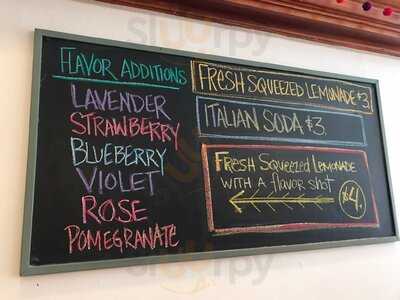 Flavor Additions
LAVENDER
STRAWBERRY
BLUEBERRY
VIOLET
ROSE
POMEGRANATE
FRESH SQUEEZED LEMONADE $3.
ITALIAN SODA $3.
FRESH SQUEEZED LEMONADE
WITH A flavor shot
$4.
sirurpy